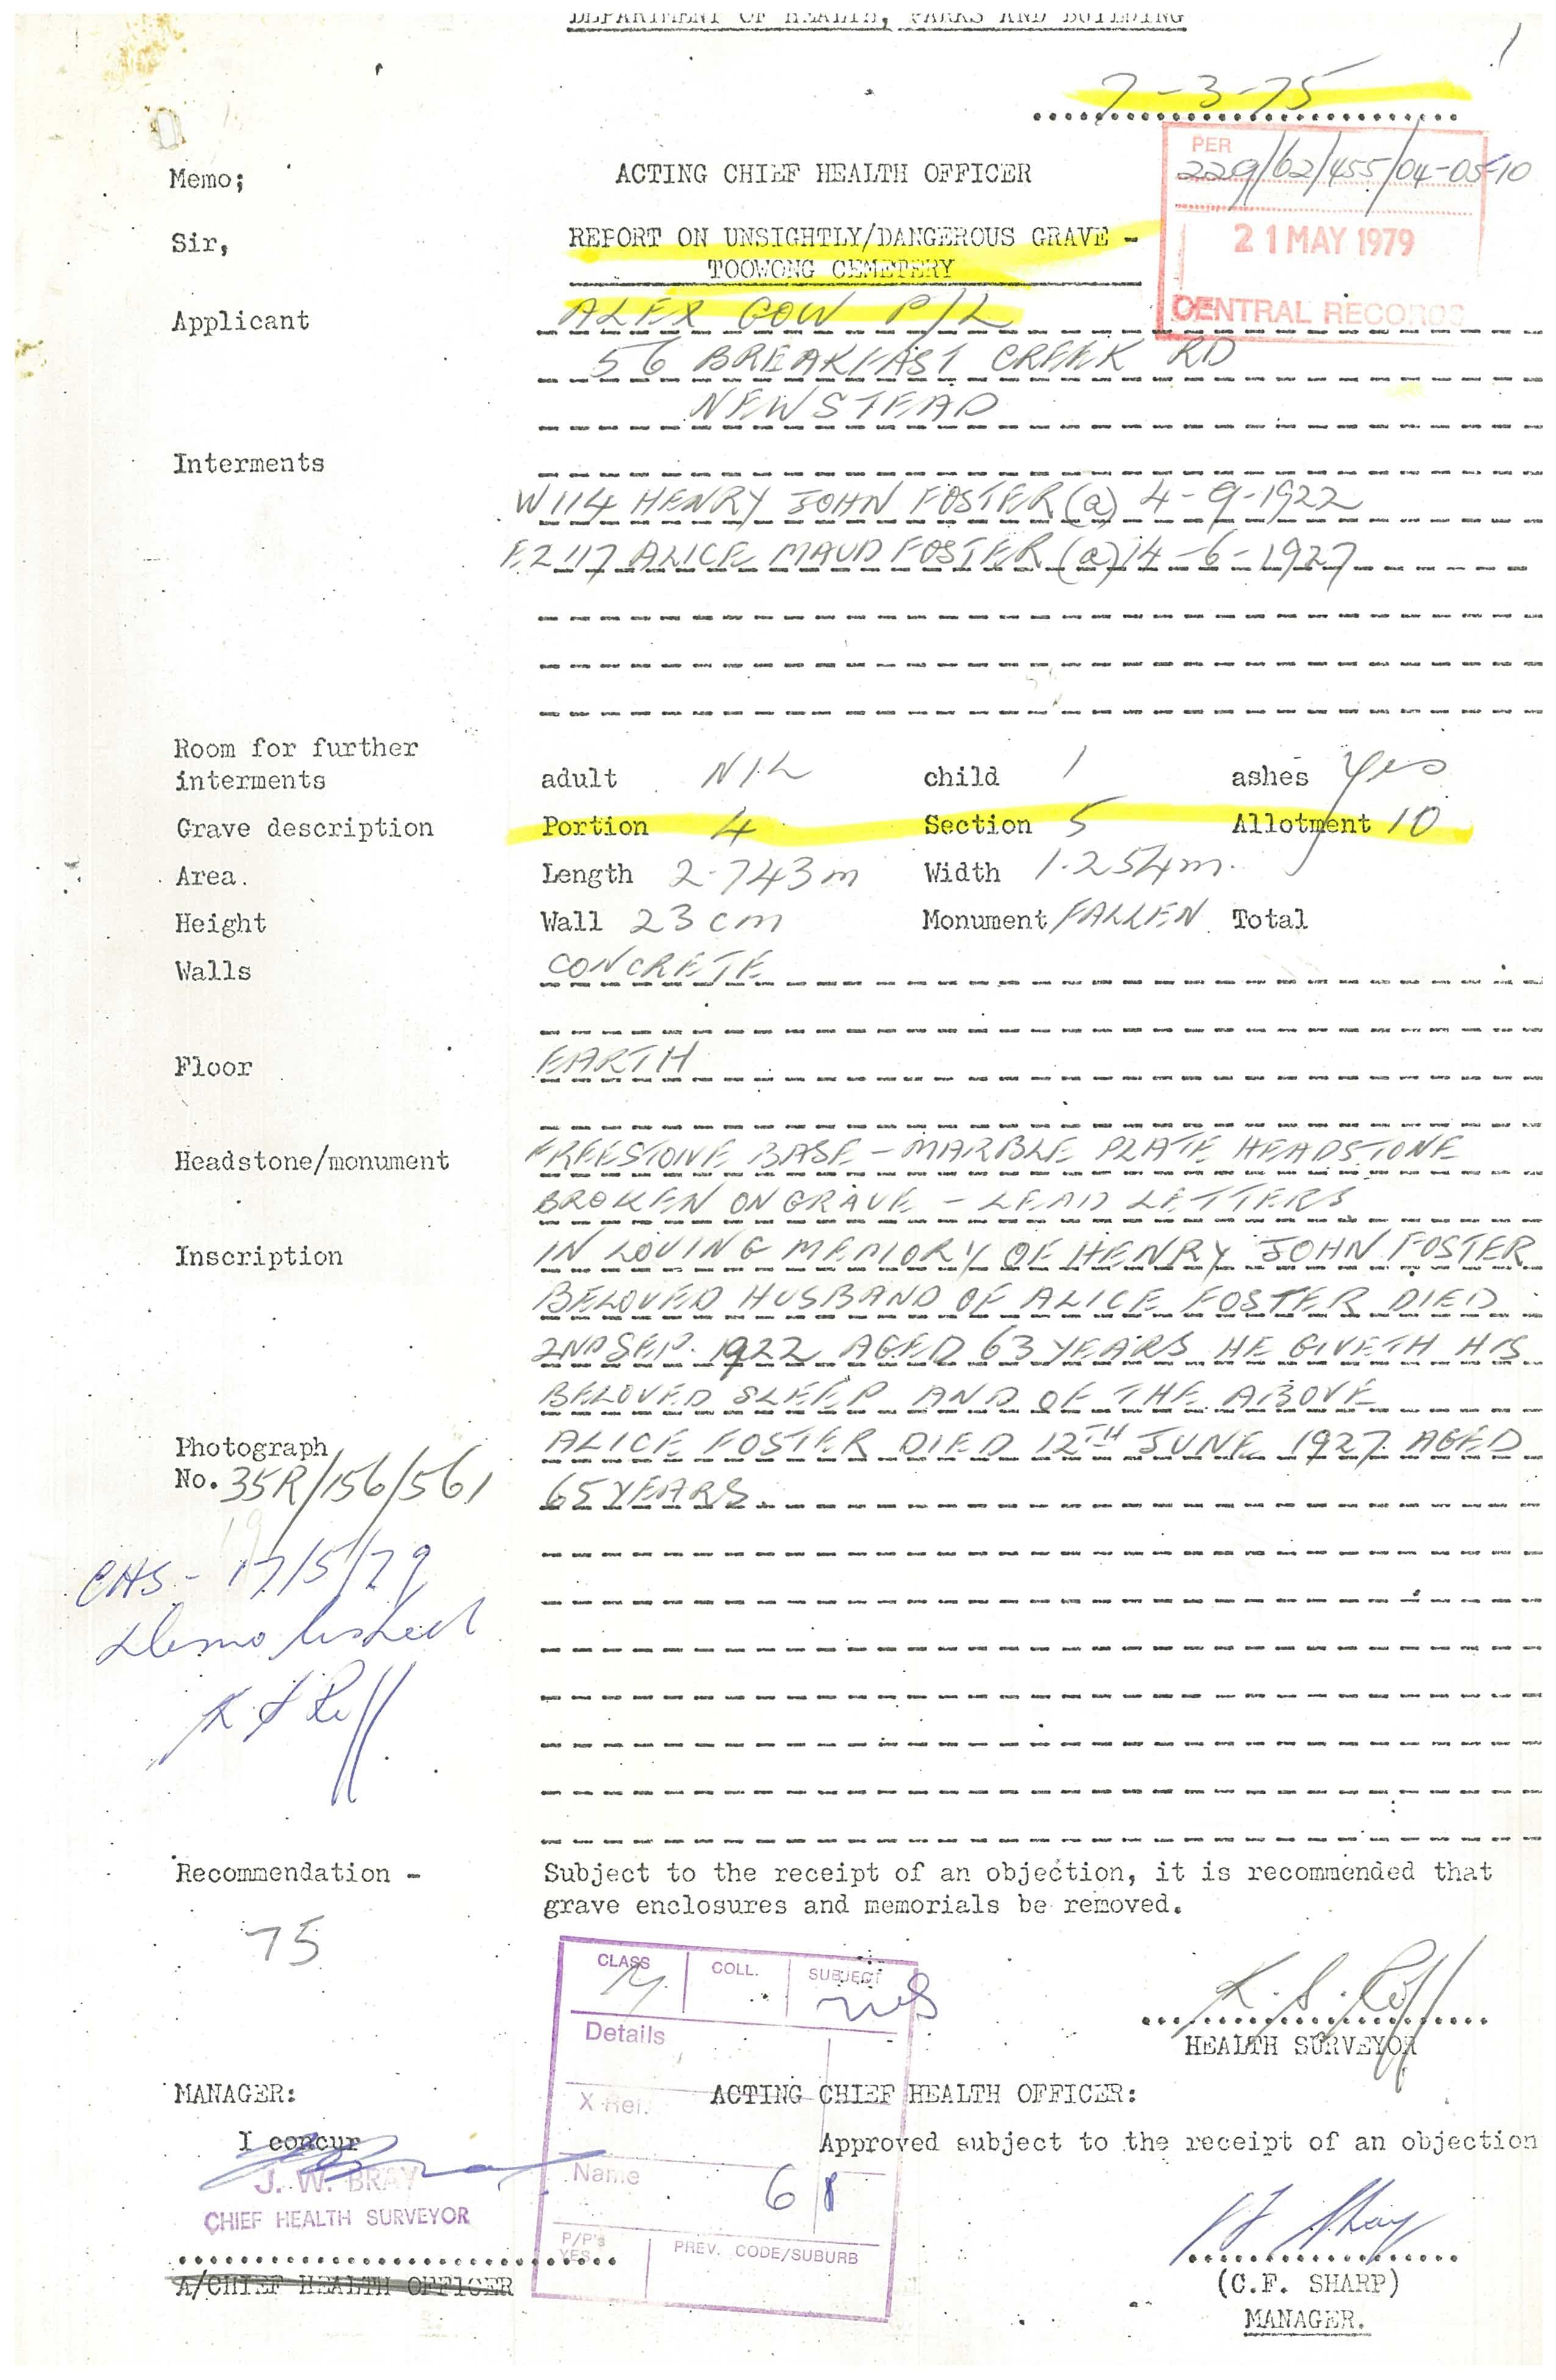 DEPARTMENT OF HEALTH, PARKS AND BUILDING
1
7-3-75
PER
229/62/455/04-05-10
21 MAY 1979
CENTRAL RECORDS
Memo; ACTING CHIEF HEALTH OFFICER
Sir, REPORT ON UNSIGHTLY/DANGEROUS GRAVE -
TOOWONG CEMETERY
Applicant ALEX GOW P/L
56 BREAKFAST CREEK RD
NEWSTEAD
Interments
W114 HENRY JOHN FOSTER (a) 4-9-1922
F2117 ALICE MAUD FOSTER (a) 14-6-1927
Room for further
interments adult NIL child 1 ashes Yes
Grave description Portion 4 Section 5 Allotment 10
Area. Length 2.743m Width 1.254m.
Height Wall 23cm Monument FALLEN Total
Walls CONCRETE
Floor EARTH
Headstone/monument FREESTONE BASE - MARBLE PLATE HEADSTONE
BROKEN ON GRAVE - LEAD LETTERS
Inscription IN LOVING MEMORY OF HENRY JOHN FOSTER
BELOVED HUSBAND OF ALICE FOSTER DIED
2ND SEP. 1922 AGED 63 YEARS HE GIVETH HIS
BELOVED SLEEP AND OF THE ABOVE
Photograph ALICE FOSTER DIED 12TH JUNE 1927 AGED
No. 35R/156/561 65 YEARS.
CHS - 17/5/79
Demolished
Recommendation - Subject to the receipt of an objection, it is recommended that
grave enclosures and memorials be removed.
75
CLASS COLL. SUBJECT
Details
K. S. Reff
HEALTH SURVEYOR
X-Ref.
MANAGER: ACTING CHIEF HEALTH OFFICER:
I concur Approved subject to the receipt of an objection
J. W. BRAY
Name 68
CHIEF HEALTH SURVEYOR
P/P's
YES
PREV. CODE/SUBURB
A/CHIEF HEALTH OFFICER
(C.F. SHARP)
MANAGER.